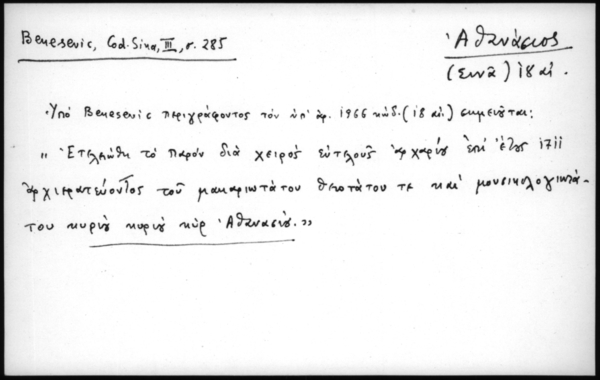 Benesevic, Cod. Sina, III, σ. 285
Ἀθανάσιος
(Σινᾶ) 18 αἰ.
Ὑπό Benesevic περιγράφοντος τόν ὑπ' ἀρ. 1966 κώδ. (18 αἰ.) σημειοῦται:
„ Ἐτελειώθη τό παρόν διά χειρός εὐτελοῦς ἐπί ἔτους 1711
ἀρχιερατεύοντος τοῦ μακαριωτάτου θειοτάτου τε καί μουσικολογιωτά-
του κυρίου κυρίου κύρ Ἀθανασίου.”